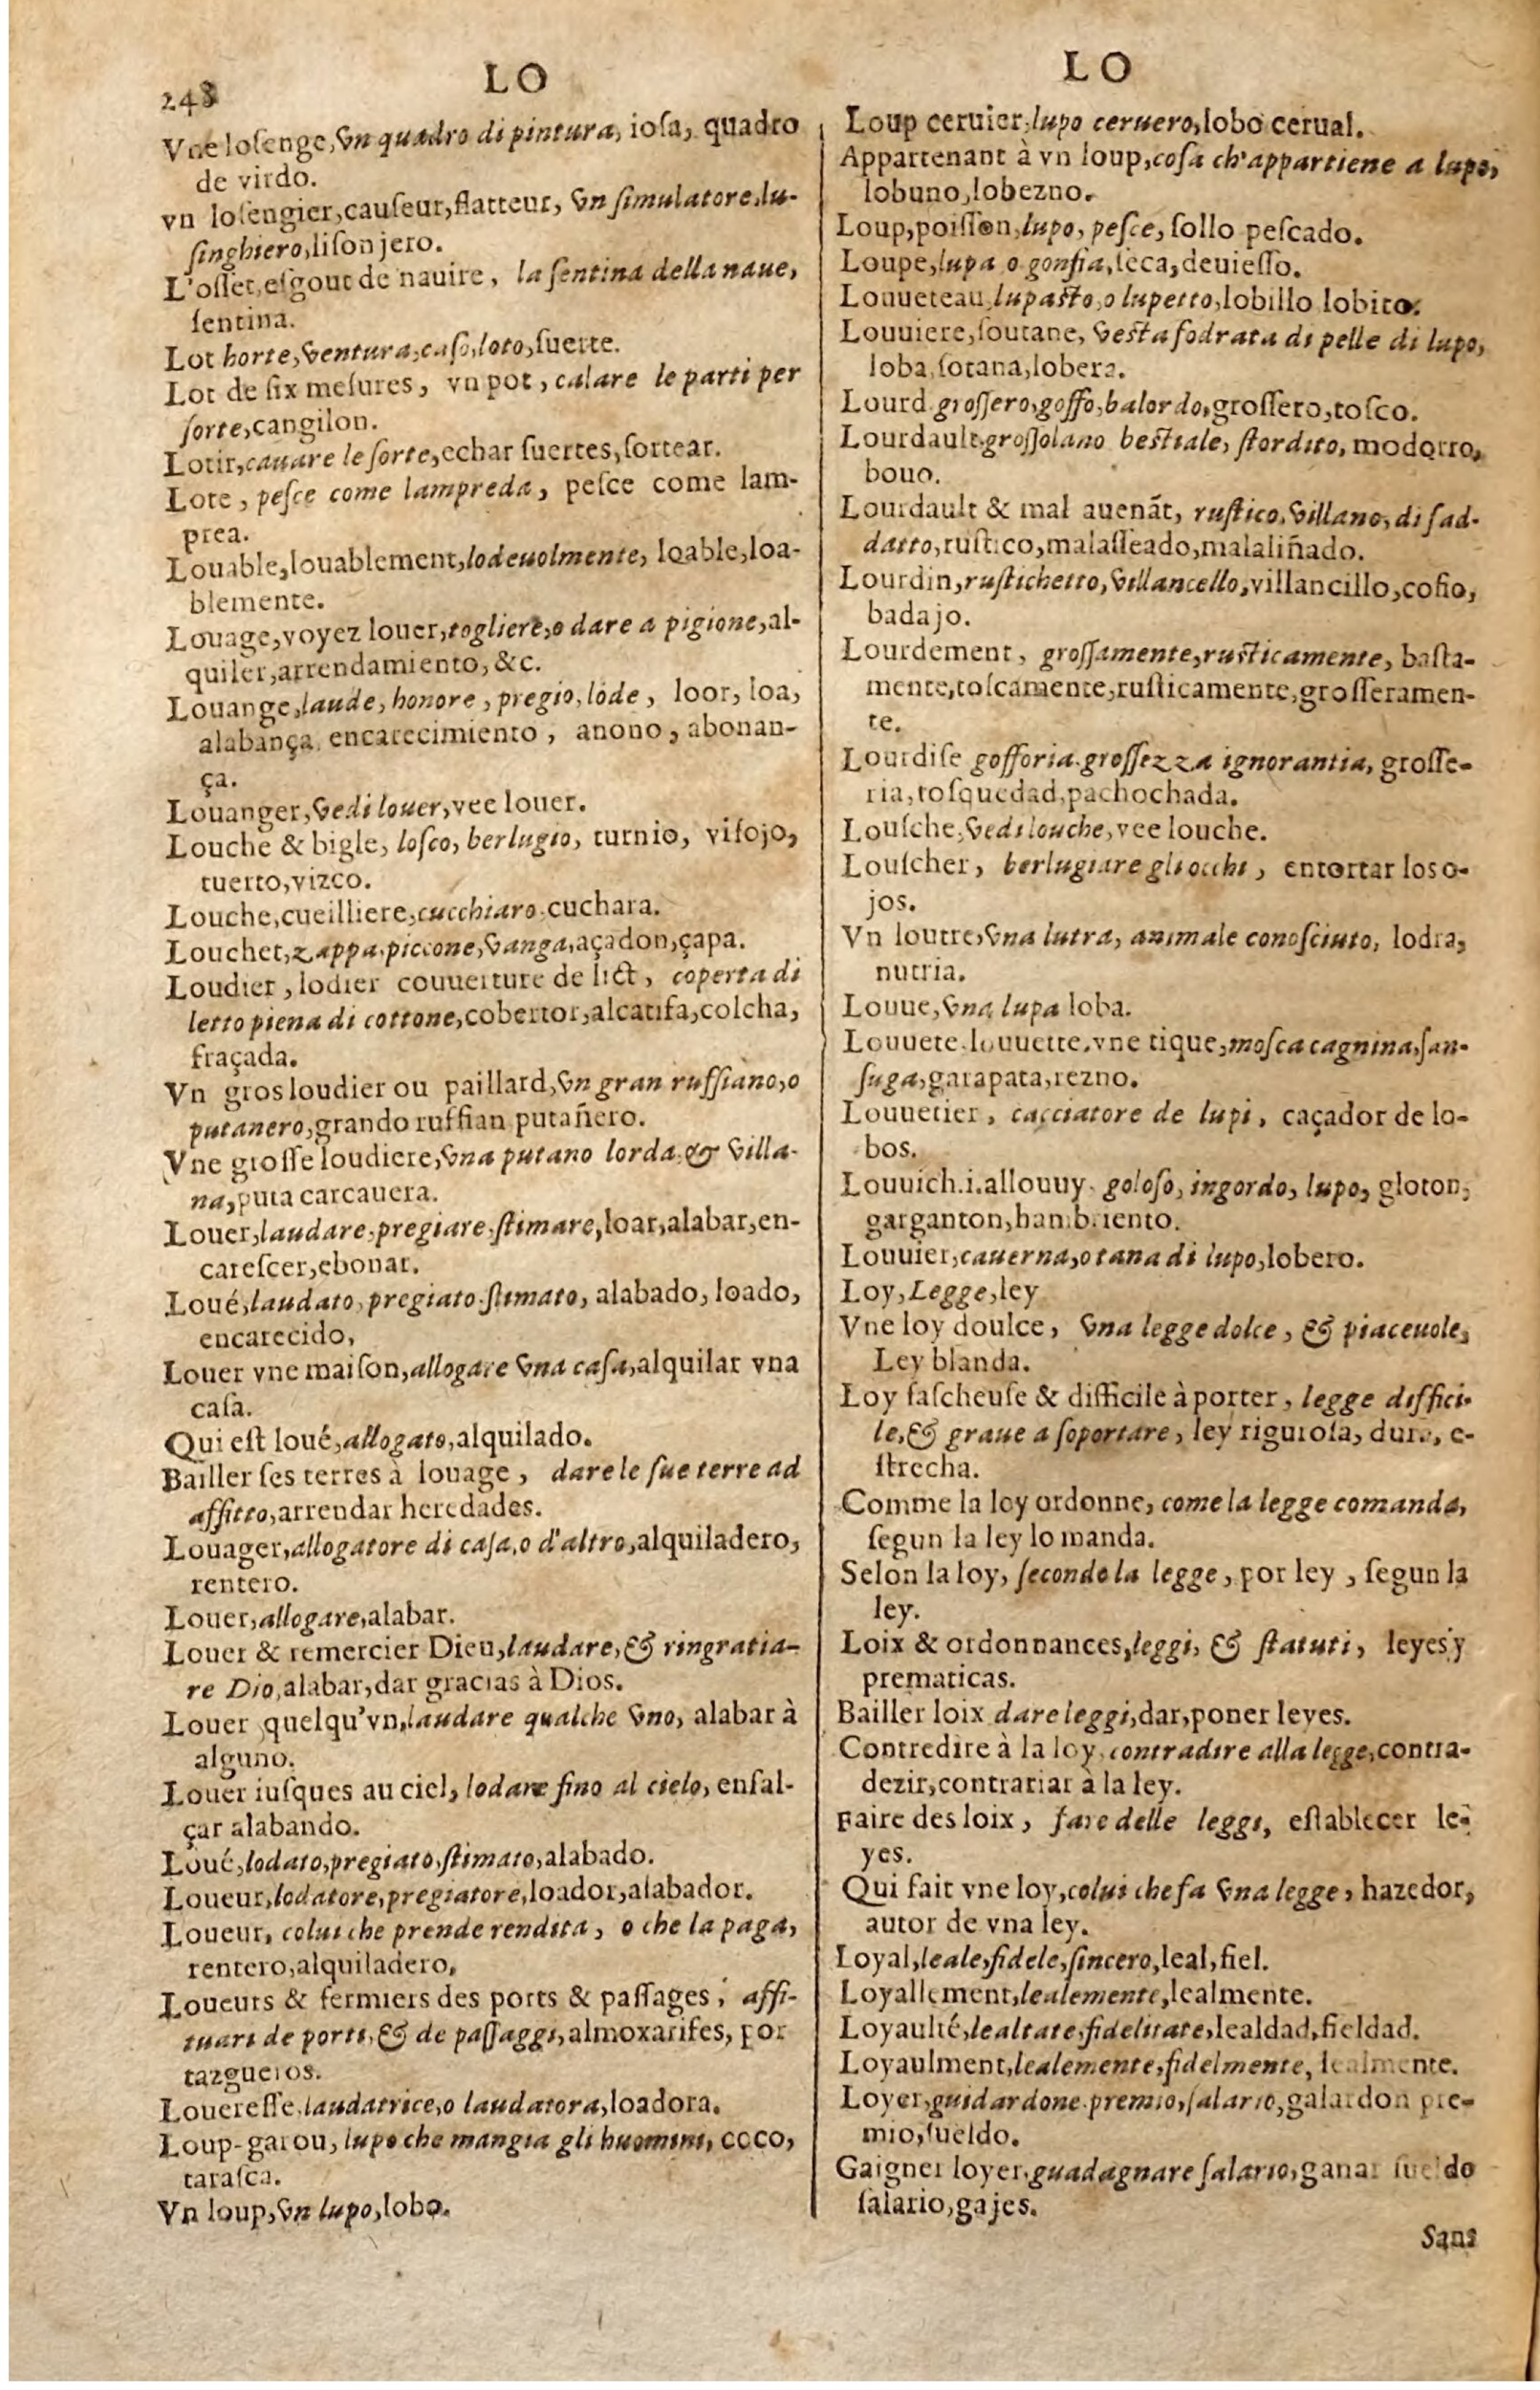 248
LO
Vne loſenge, vn quadro di pintura, ioſa, quadro
de virdo.
vn loſengier, cauſeur, flatteur, vn ſimulatore, lu-
ſinghiero, liſonjero.
L'oſſet, eſgout de nauire, la ſentina della naue,
ſentina.
Lot horte, ventura, caſo, loto, ſuerte.
Lot de ſix meſures, vn pot, calare le parti per
ſorte, cangilon.
Lotir, cauare le ſorte, echar ſuertes, ſortear.
Lote, peſce come lampreda, peſce come lam-
prea.
Louable, louablement, lodeuolmente, loable, loa-
blemente.
Louage, voyez louer, togliere, o dare a pigione, al-
quiler, arrendamiento, &c.
Louange, laude, honore, pregio, lode, loor, loa,
alabança, encarecimiento, anono, abonan-
ça.
Louanger, vedi louer, vee louer.
Louche & bigle, loſco, berlugio, turnio, viſojo,
tuerto, vizco.
Louche, cueilliere, cucchiaro, cuchara.
Louchet, zappa, piccone, vanga, açadon, çapa.
Loudier, lodier couuerture de lict, coperta di
letto piena di cottone, cobertor, alcatifa, colcha,
fraçada.
Vn gros loudier ou paillard, vn gran ruffiano, o
putanero, grando ruffian putañero.
Vne groſſe loudiere, vna putano lorda, & villa-
na, puta carcauera.
Louer, laudare, pregiare, ſtimare, loar, alabar, en-
careſcer, ebonar.
Loué, laudato, pregiato, ſtimato, alabado, loado,
encarecido,
Louer vne maiſon, allogare vna caſa, alquilar vna
caſa.
Qui eſt loué, allogato, alquilado.
Bailler ſes terres à louage, dare le ſue terre ad
affitto, arrendar heredades.
Louager, allogatore di caſa, o d'altro, alquiladero,
rentero.
Louer, allogare, alabar.
Louer & remercier Dieu, laudare, & ringratia-
re Dio, alabar, dar gracias à Dios.
Louer quelqu'vn, laudare qualche vno, alabar à
alguno.
Louer iuſques au ciel, lodare fino al cielo, enſal-
çar alabando.
Loué, lodato, pregiato, ſtimato, alabado.
Loueur, lodatore, pregiatore, loador, alabador.
Loueur, colui che prende rendita, o che la paga,
rentero, alquiladero,
Loueurs & fermiers des ports & paſſages, affi-
tuari de porti, & de paſſaggi, almoxarifes, por
tazgueros.
Louereſſe, laudatrice, o laudatora, loadora.
Loup-garou, lupo che mangia gli huomini, coco,
taraſca.
Vn loup, vn lupo, lobo.
LO
Loup ceruier, lupo ceruero, lobo cerual.
Appartenant à vn loup, coſa ch'appartiene a lupo,
lobuno, lobezno.
Loup, poiſſon, lupo, peſce, ſollo peſcado.
Loupe, lupa o gonfia, ſeca, deuieſſo.
Louueteau, lupaſto, o lupetto, lobillo lobito.
Louuiere, ſoutane, veſta fodrata di pelle di lupo,
loba, ſotana, lobera.
Lourd groſſero, goffo, balordo, groſſero, toſco.
Lourdault, groſſolano beſtiale, ſtordito, modorro,
bouo.
Lourdault & mal auenãt, ruſtico, villano, diſad-
datto, ruſtico, malaſſeado, malaliñado.
Lourdin, ruſtichetto, villancello, villancillo, cofio,
badajo.
Lourdement, groſſamente, ruſticamente, baſta-
mente, toſcamente, ruſticamente, groſſeramen-
te.
Lourdiſe gofforia, groſſezza ignorantia, groſſe-
ria, toſquedad, pachochada.
Louſche, vedi louche, vee louche.
Louſcher, berlugiare gli occhi, entortar los o-
jos.
Vn loutre, vna lutra, animale conoſciuto, lodra,
nutria.
Louue, vna lupa loba.
Louuete, louuette, vne tique, moſca cagnina, ſan-
ſuga, garapata, rezno.
Louuetier, cacciatore de lupi, caçador de lo-
bos.
Louuich.i.allouuy, goloſo, ingordo, lupo, gloton,
garganton, hambriento.
Louuier, cauerna, o tana di lupo, lobero.
Loy, Legge, ley
Vne loy doulce, vna legge dolce, & piaceuole,
Ley blanda.
Loy faſcheuſe & difficile à porter, legge diffici-
le, & graue a ſoportare, ley riguroſa, dura, e-
ſtrecha.
Comme la loy ordonne, come la legge comanda,
ſegun la ley lo manda.
Selon la loy, ſecondo la legge, por ley, ſegun la
ley.
Loix & ordonnances, leggi, & ſtatuti, leyes y
prematicas.
Bailler loix dare leggi, dar, poner leyes.
Contredire à la loy, contradire alla legge, contra-
dezir, contrariar à la ley.
Faire des loix, fare delle leggi, eſtablecer le-
yes.
Qui fait vne loy, colui che fa vna legge, hazedor,
autor de vna ley.
Loyal, leale, fidele, ſincero, leal, fiel.
Loyallement, lealemente, lealmente.
Loyaulté, lealtate, fidelitate, lealdad, fieldad.
Loyaulment, lealemente, fidelmente, lealmente.
Loyer, guidardone, premio, ſalario, galardon pre-
mio, ſueldo.
Gaigner loyer, guadagnare ſalario, ganar ſueldo
ſalario, gajes.
Sans